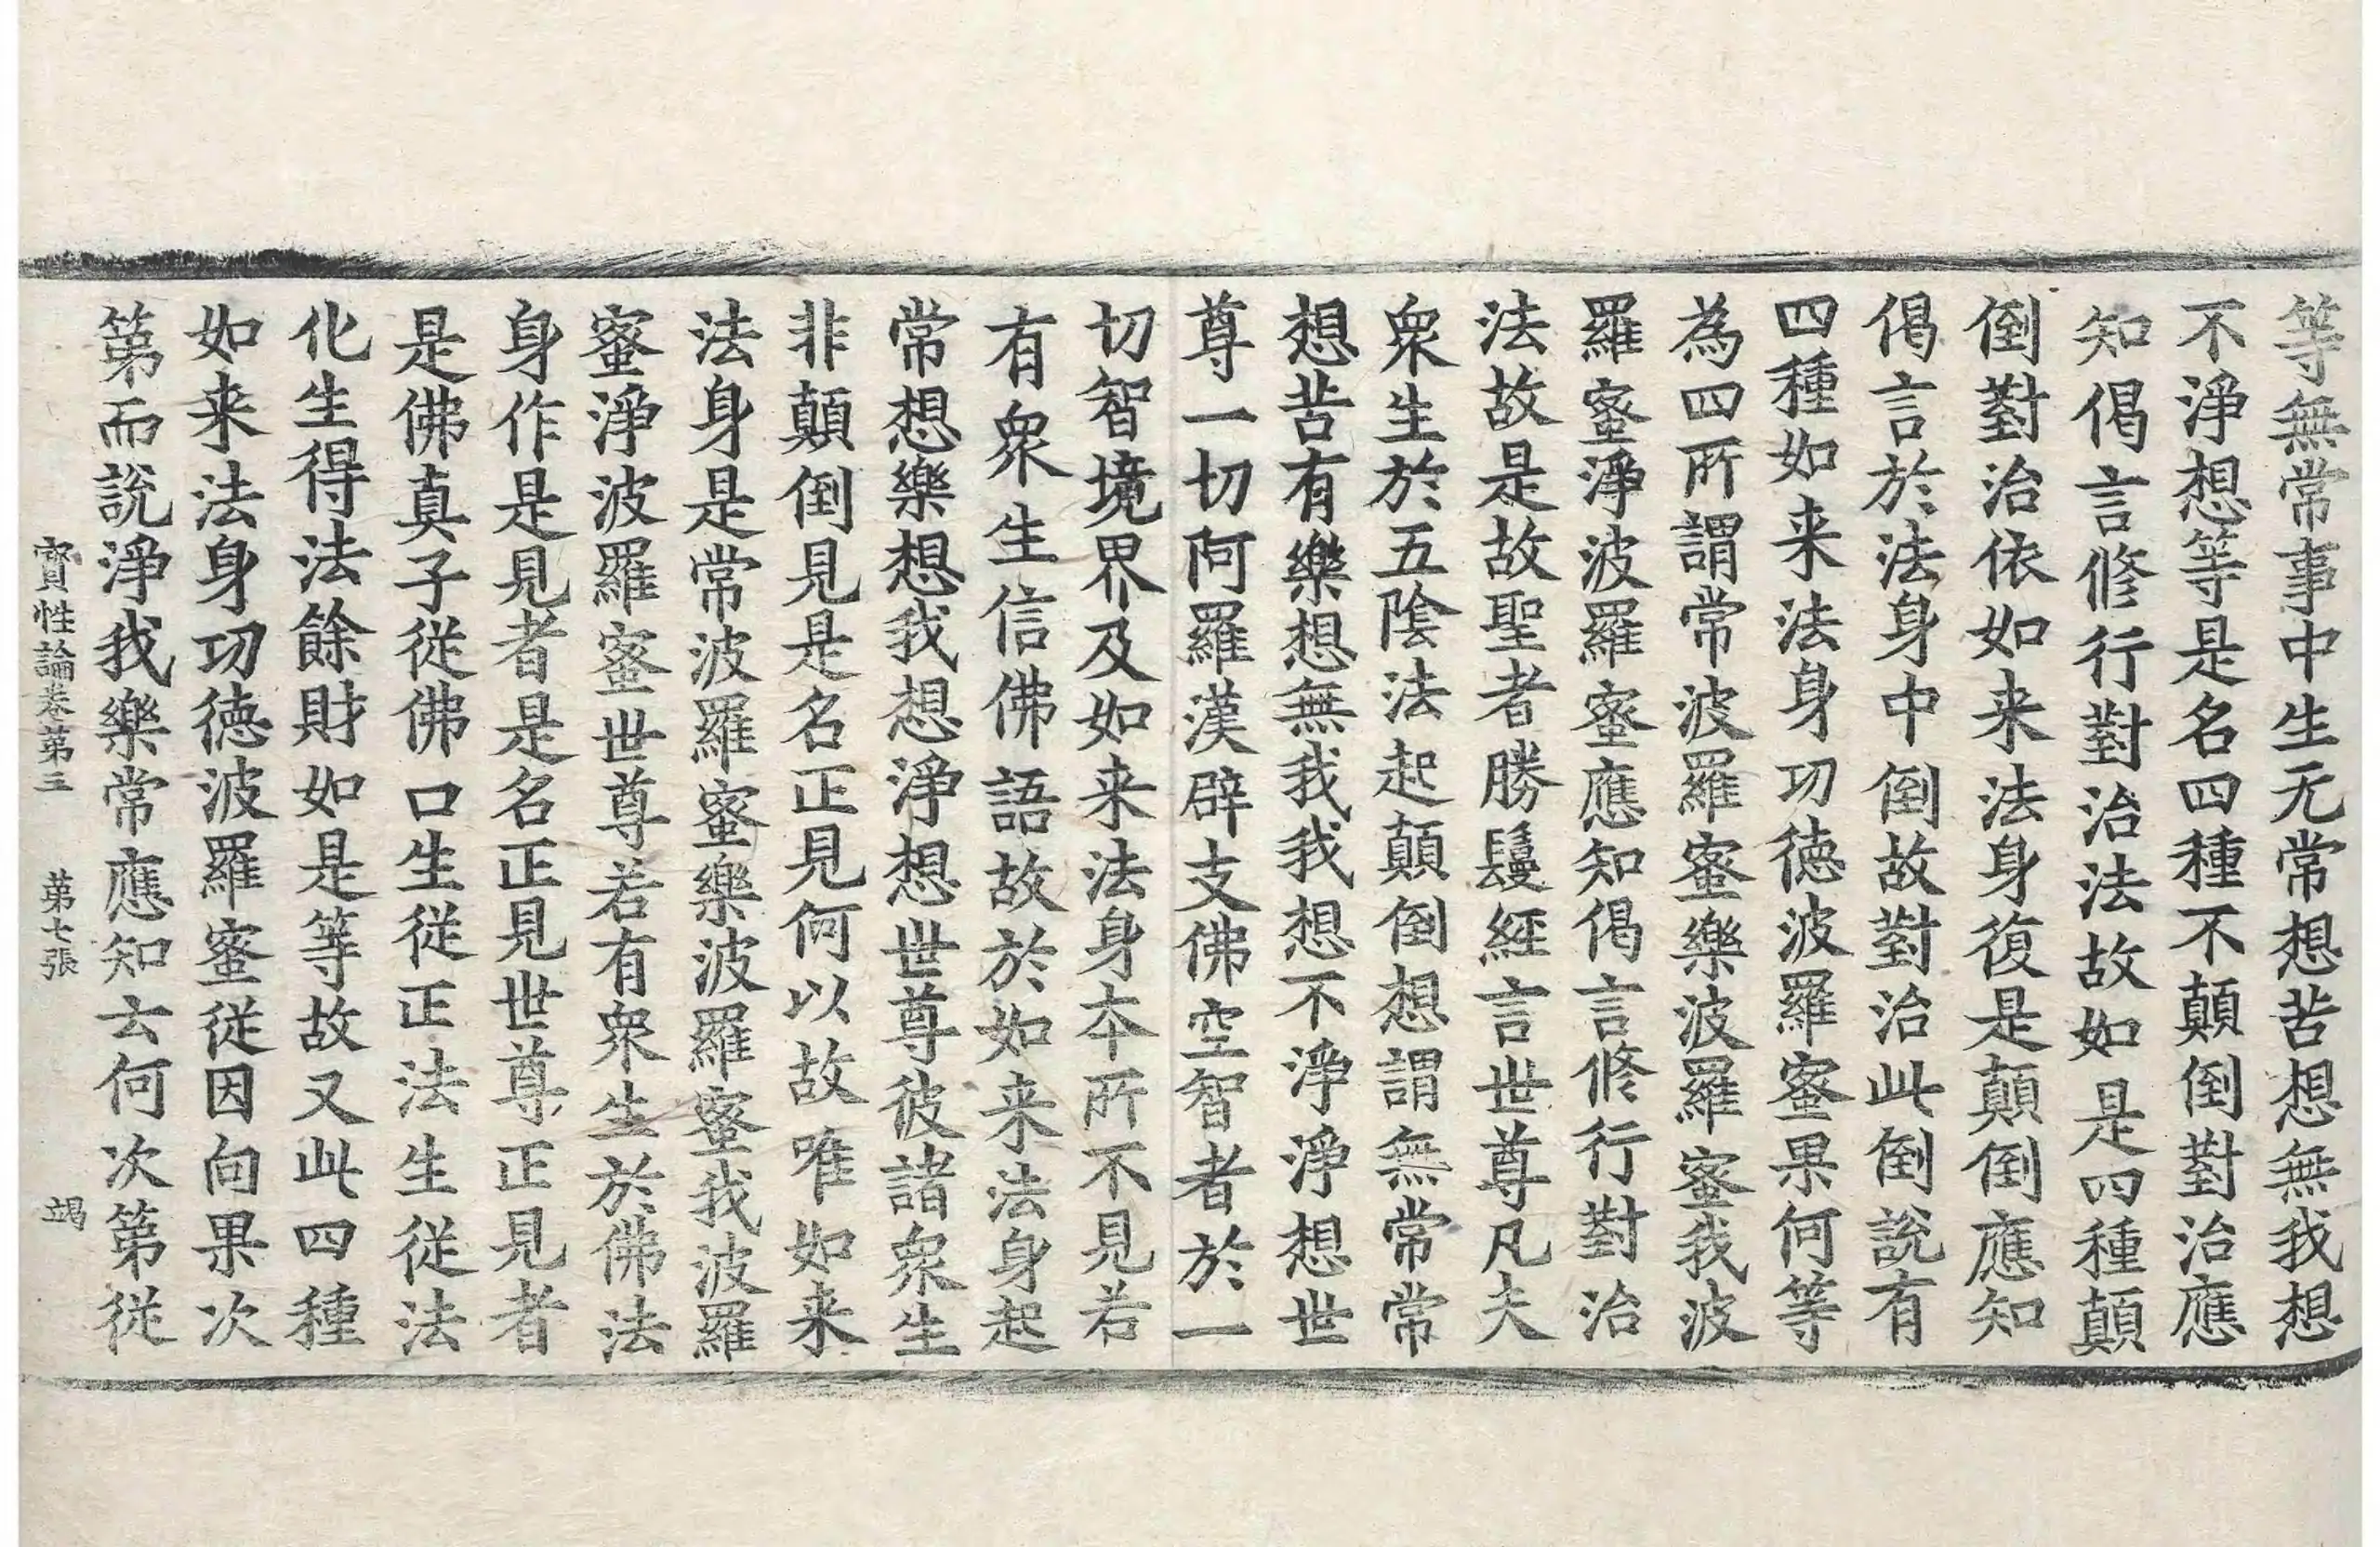 等無常事中生无常想苦想無我想
不淨想等是名四種不顛倒對治應
知偈言修行對治法故如是四種顛
倒對治依如来法身復是顛倒應知
偈言於法身中倒故對治此倒說有
四種如来法身功徳波羅蜜果何等
為四所謂常波羅蜜樂波羅蜜我波
羅蜜淨波羅蜜應知偈言修行對治
法故是故聖者勝鬘經言世尊凡夫
衆生於五陰法起顛倒想謂無常常
想苦有樂想無我我想不淨淨想世
尊一切阿羅漢辟支佛空智者於一
切智境界及如来法身本所不見若
有衆生信佛語故於如来法身起
常想樂想我想淨想世尊彼諸衆生
非顛倒見是名正見何以故唯如来
法身是常波羅蜜樂波羅蜜我波羅
蜜淨波羅蜜世尊若有衆生於佛法
身作是見者是名正見世尊正見者
是佛真子從佛口生從正法生從法
化生得法餘財如是等故又此四種
如来法身功徳波羅蜜從因向果次
第而說淨我樂常應知云何次第從
寳性論卷第三 第七張 竭